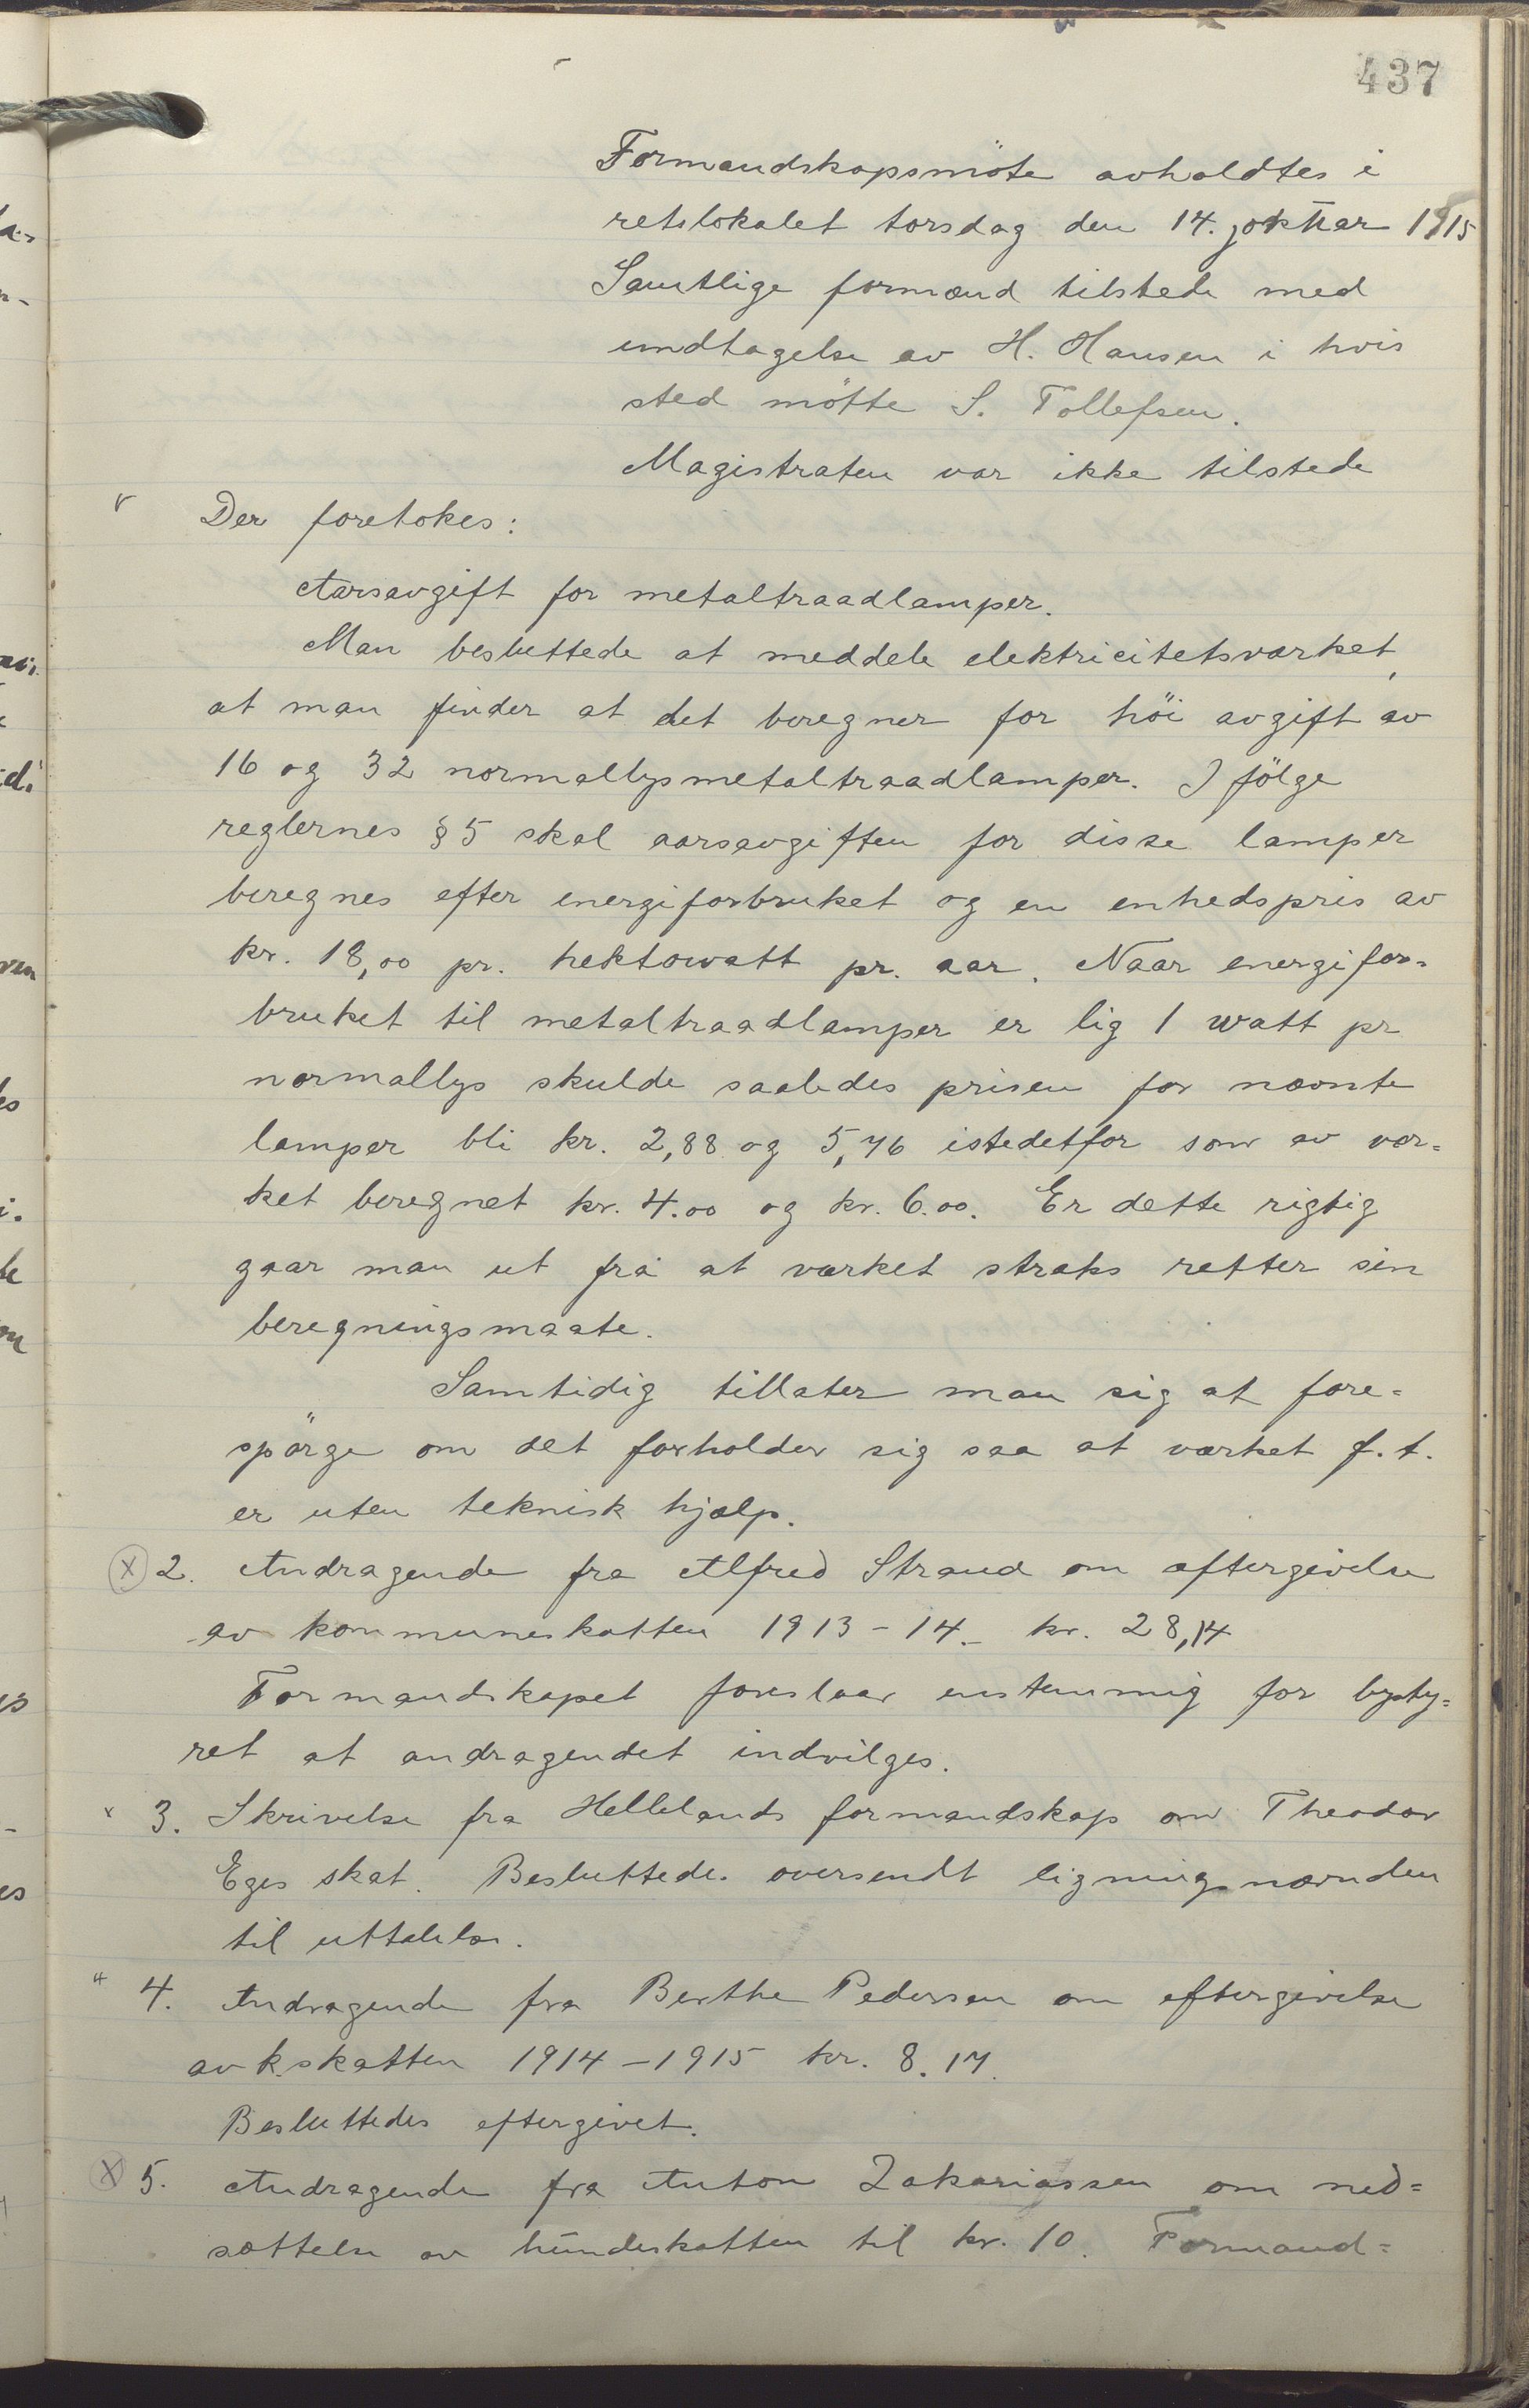 437
Formandskapsmöte avholdtes i
retslokalet torsdag den 14. 1915
Samtlige formænd tilstede med
undtagelse av H. Hansen i hvis
sted mötte S. Tollefsen.
Magistraten var ikke tilstede
Der foretokes:
Aarsavgift for metaltraadlamper.
Man besluttede at meddele elektricitetsværket,
at man finder at det beregner for höi avgift av
16 og 32 normallysmetaltraadlamper. I fölge
reglernes § 5 skal aarsavgiften for disse lamper
beregnes efter energiforbruket og en enhedspris av
kr. 18,00 pr. hektowatt pr. aar. Naar energifor=
bruket til metaltraadlamper er lig 1 watt pr
normallys skulde saaledes prisen for nævnte
lamper bli kr. 2,88 og 5,76 istedetfor som av vær=
ket beregnet kr. 4.00 og kr. 6.00. Er dette rigtig
gaar man ut fra at værket straks retter sin
beregningsmaate.
Samtidig tillater man sig at fore=
spörge om det forholder sig saa at værket f.t.
er uten teknisk hjælp.
x 2. Andragende fra Alfred Strand om eftergivelse
av kommuneskatten 1913-14.- kr. 28,14
Formandskapet foreslaar enstemmig for bysty=
ret at andragendet indvilges.
x 3. Skrivelse fra Hellelands formandskap om Theodor
Eges skat. Besluttedes oversendt ligningsnævnden
til uttalelse.
4. Andragende fra Berthe Pedersen om eftergivelse
av k.skatten 1914-1915 kr. 8.17.
Besluttedes eftergivet.
x 5. Andragende fra Anton Zakariassen om ned=
sættelse av hundeskatten til kr. 10. Formand=